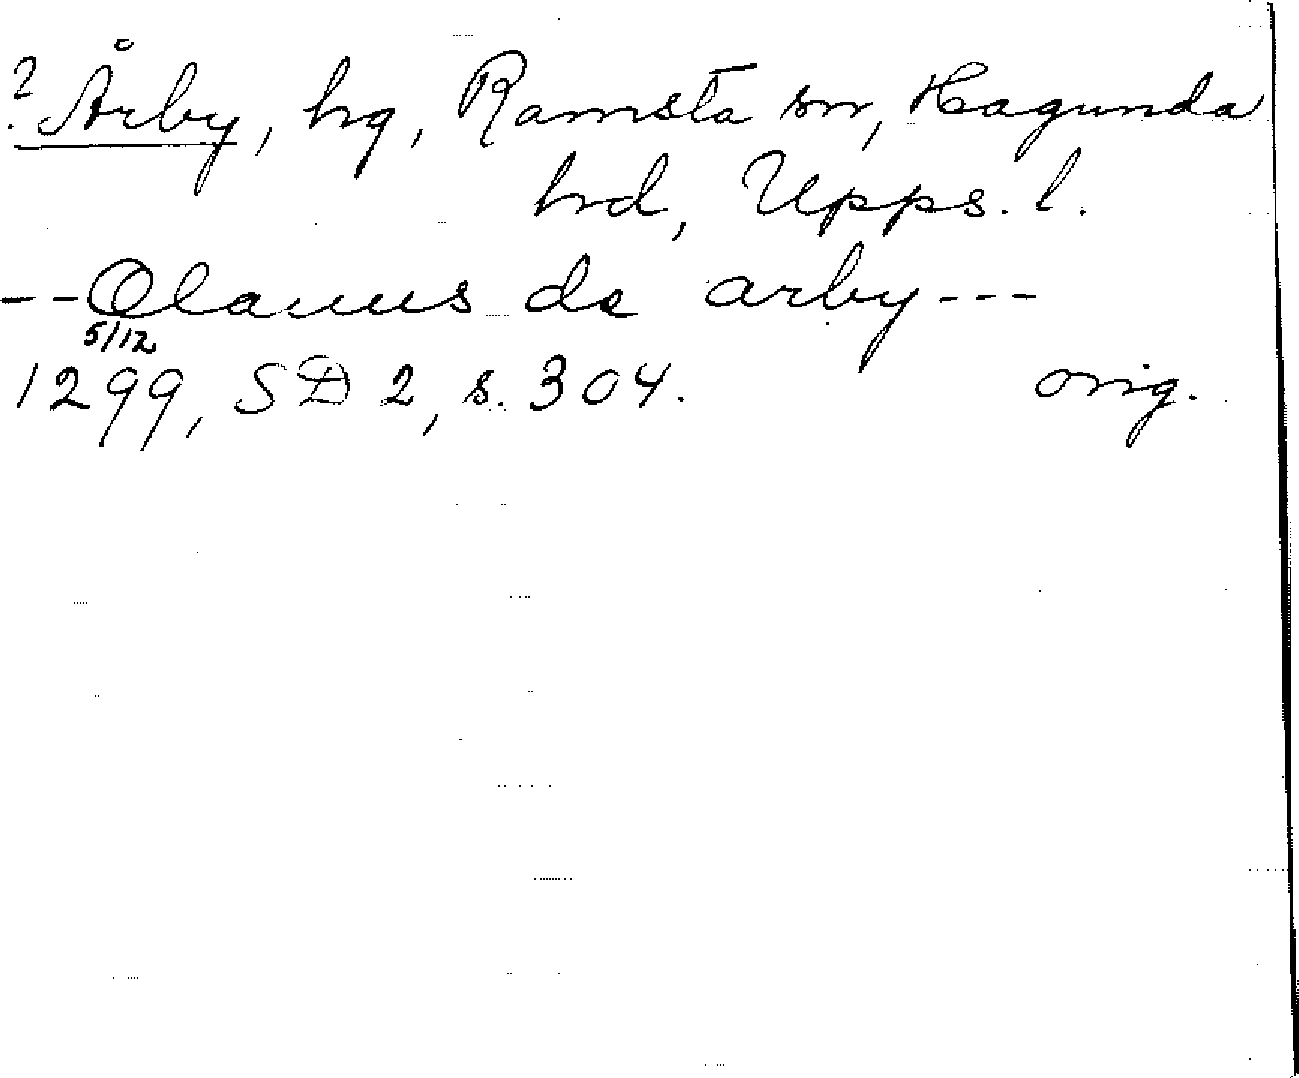 ? Årby, hg, Ramsta sn, Hagunda
hd, Upps. l.
-- Olauus de arby ---
5/12
1299, SD 2, s. 304. orig.